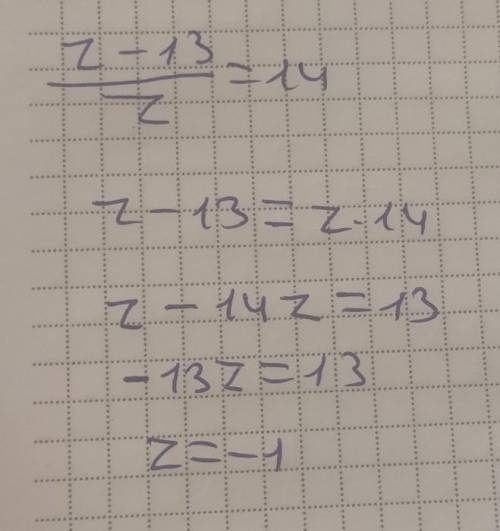 z - 13 / z = 14
z - 13 = z · 14
z - 14z = 13
- 13z = 13
z = - 1